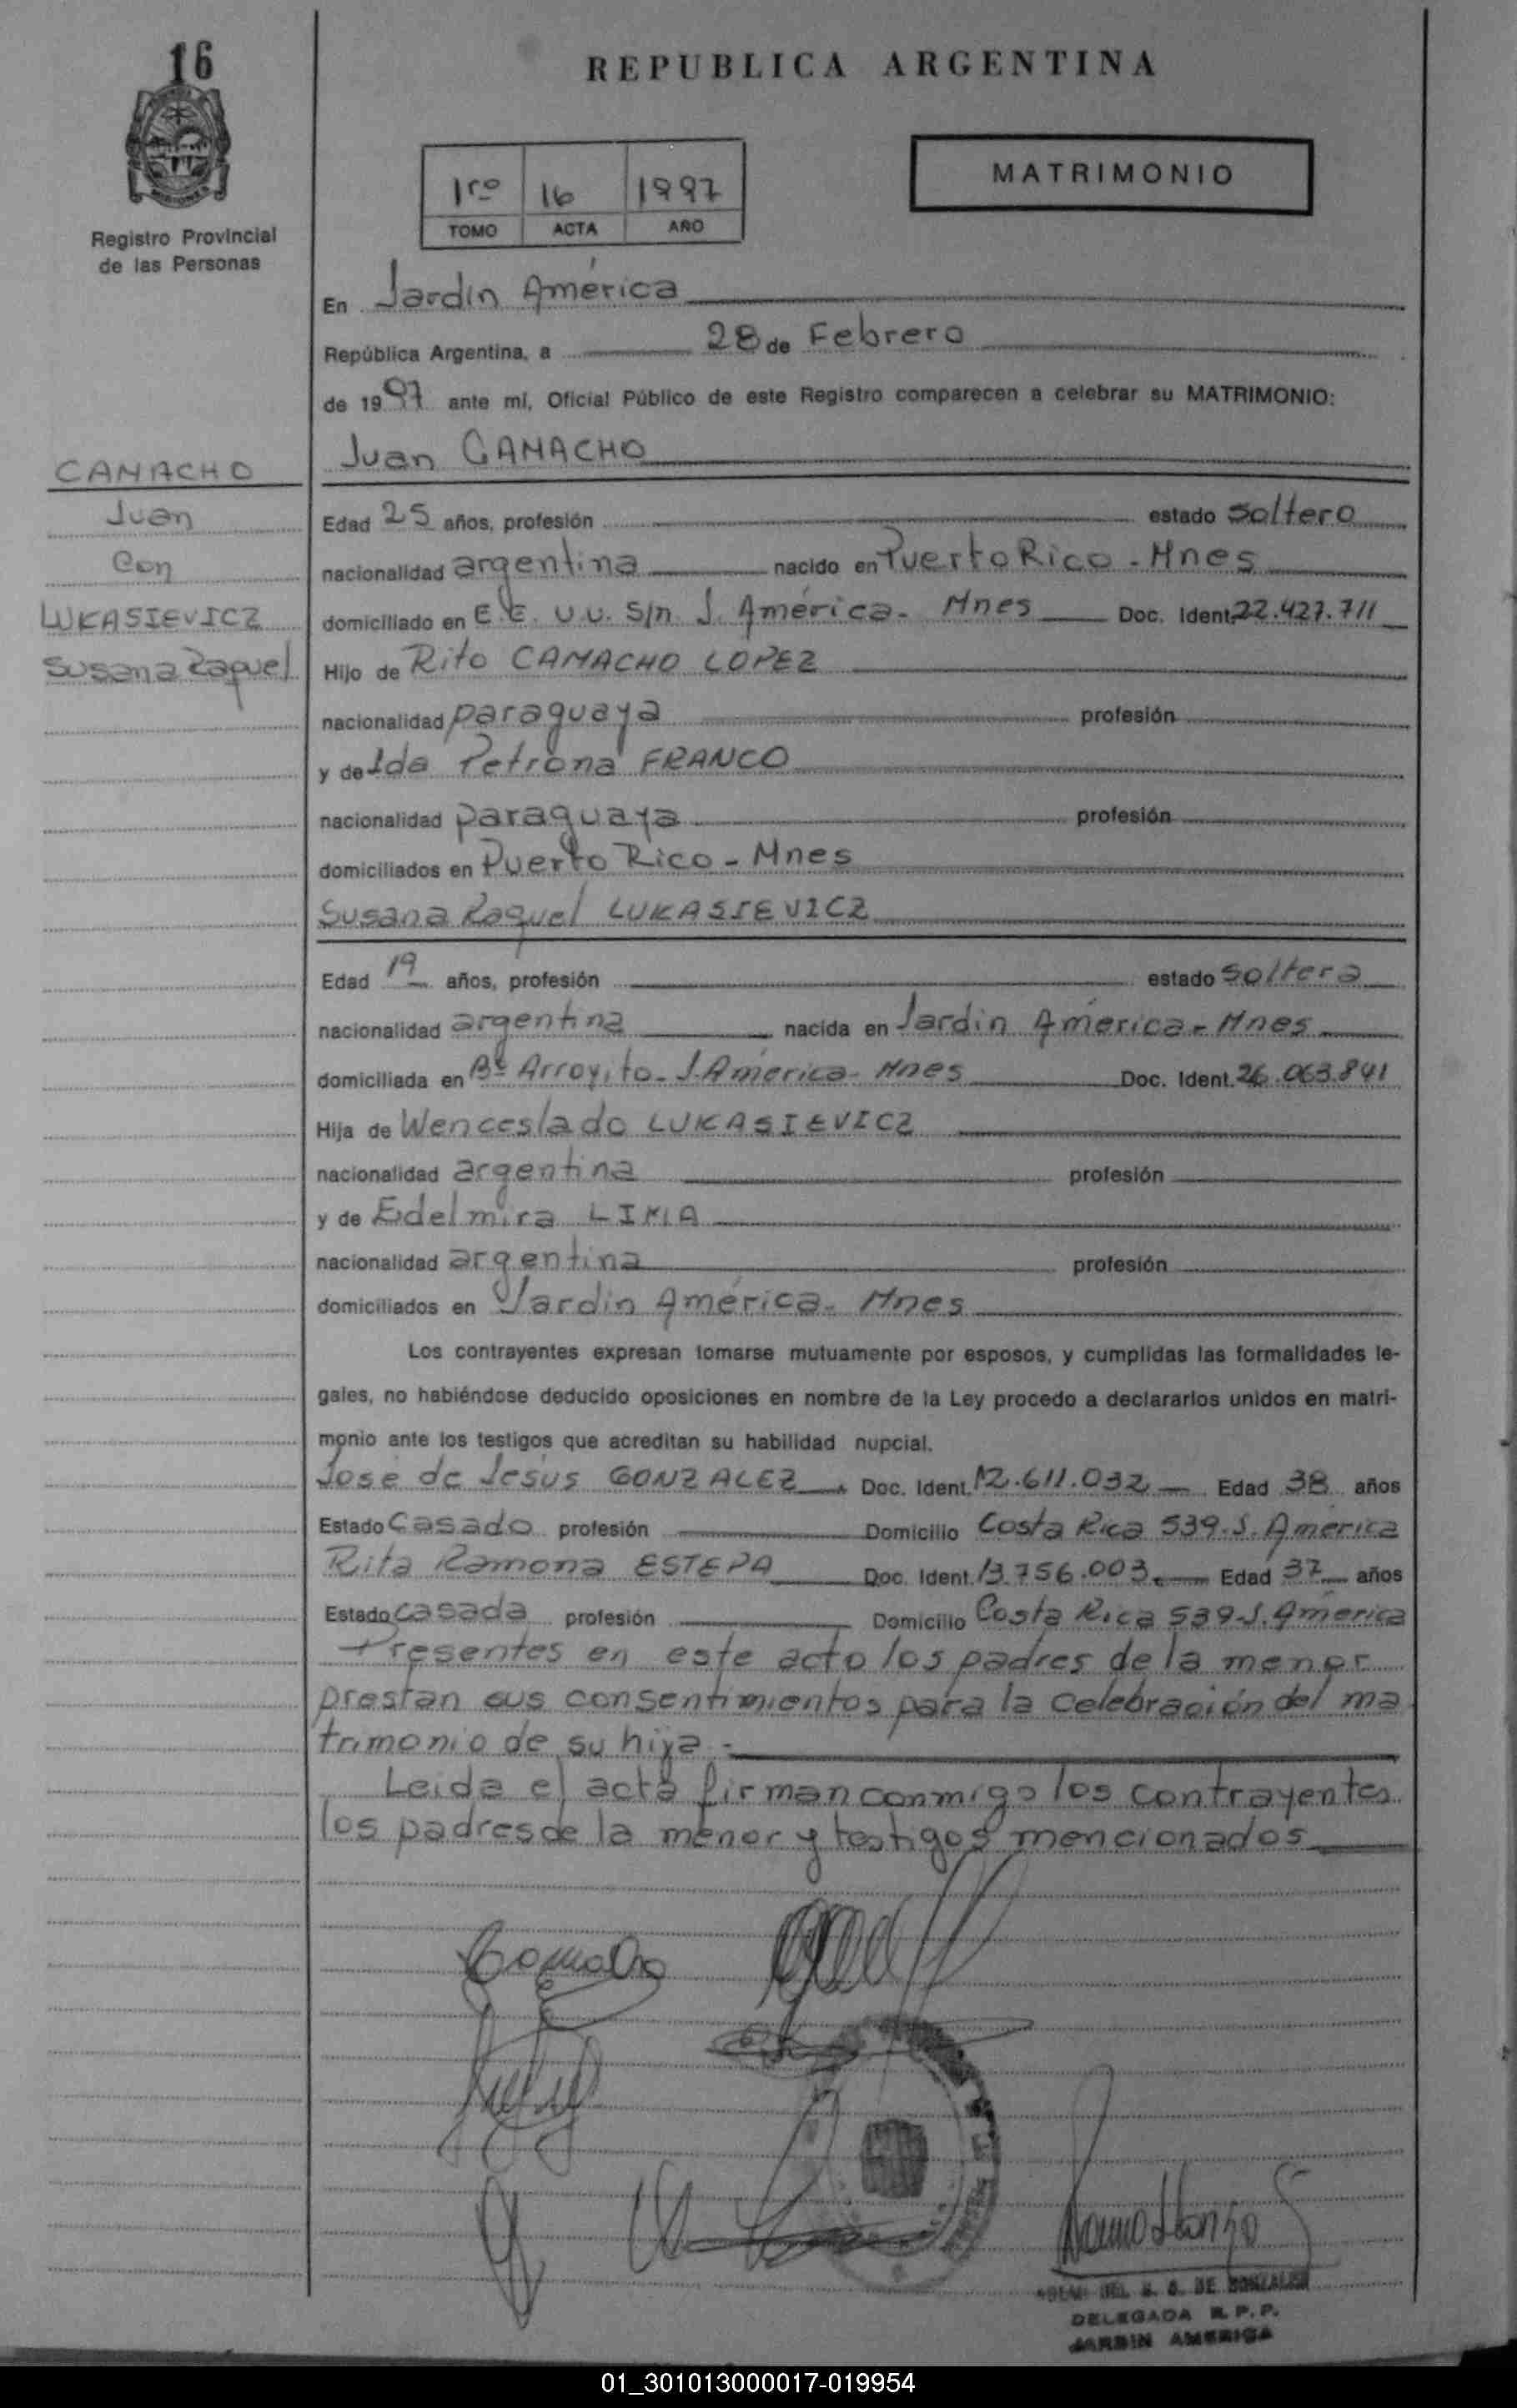 16
REPUBLICA ARGENTINA
1ro 16 1997
TOMO ACTA AÑO
MATRIMONIO
Registro Provincial
de las Personas
En Jardín América
República Argentina, a 28 de Febrero
de 1997 ante mí, Oficial Público de este Registro comparecen a celebrar su MATRIMONIO:
Juan CAMACHO
CAMACHO
Juan
Con
LUKASIEVICZ
Susana Raquel
Edad 25 años, profesión estado soltero
nacionalidad argentina nacido en Puerto Rico - Mnes
domiciliado en E.E. U.U. S/n J. América - Mnes Doc. Ident. 22.427.711
Hijo de Rito CAMACHO LOPEZ
nacionalidad paraguaya profesión
y de Ida Petrona FRANCO
nacionalidad paraguaya profesión
domiciliados en Puerto Rico - Mnes
Susana Raquel LUKASIEVICZ
Edad 19 años, profesión estado soltera
nacionalidad argentina nacida en Jardín América - Mnes
domiciliada en Bº Arroyito - J. América - Mnes Doc. Ident. 26.063.841
Hija de Wenceslado LUKASIEVICZ
nacionalidad argentina profesión
y de Edelmira LIMA
nacionalidad argentina profesión
domiciliados en Jardín América - Mnes
Los contrayentes expresan tomarse mutuamente por esposos, y cumplidas las formalidades le-
gales, no habiéndose deducido oposiciones en nombre de la Ley procedo a declararlos unidos en matri-
monio ante los testigos que acreditan su habilidad nupcial.
José de Jesús GONZALEZ Doc. Ident. 12.611.032 Edad 38 años
Estado Casado profesión Domicilio Costa Rica 539 - J. América
Rita Ramona ESTEPA Doc. Ident. 13.756.003 Edad 37 años
Estado casada profesión Domicilio Costa Rica 539 - J. América
Presentes en este acto los padres de la menor
prestan sus consentimientos para la celebración del ma
trimonio de su hija.-
Leida el acta firman conmigo los contrayentes
los padres de la menor y testigos mencionados
Camacho
DEL S. G. DE GONZALEZ
DELEGADA R.P.P.
JARDIN AMERICA
01_301013000017-019954